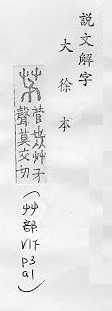 說文解字
大徐本
茅
菅也从艸矛
聲莫交切
(艸部
V1下
P3
a1)